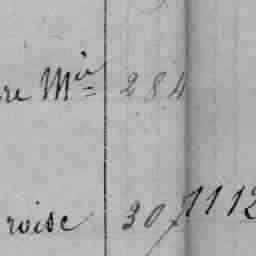 re Mie 284
roise 307 1112